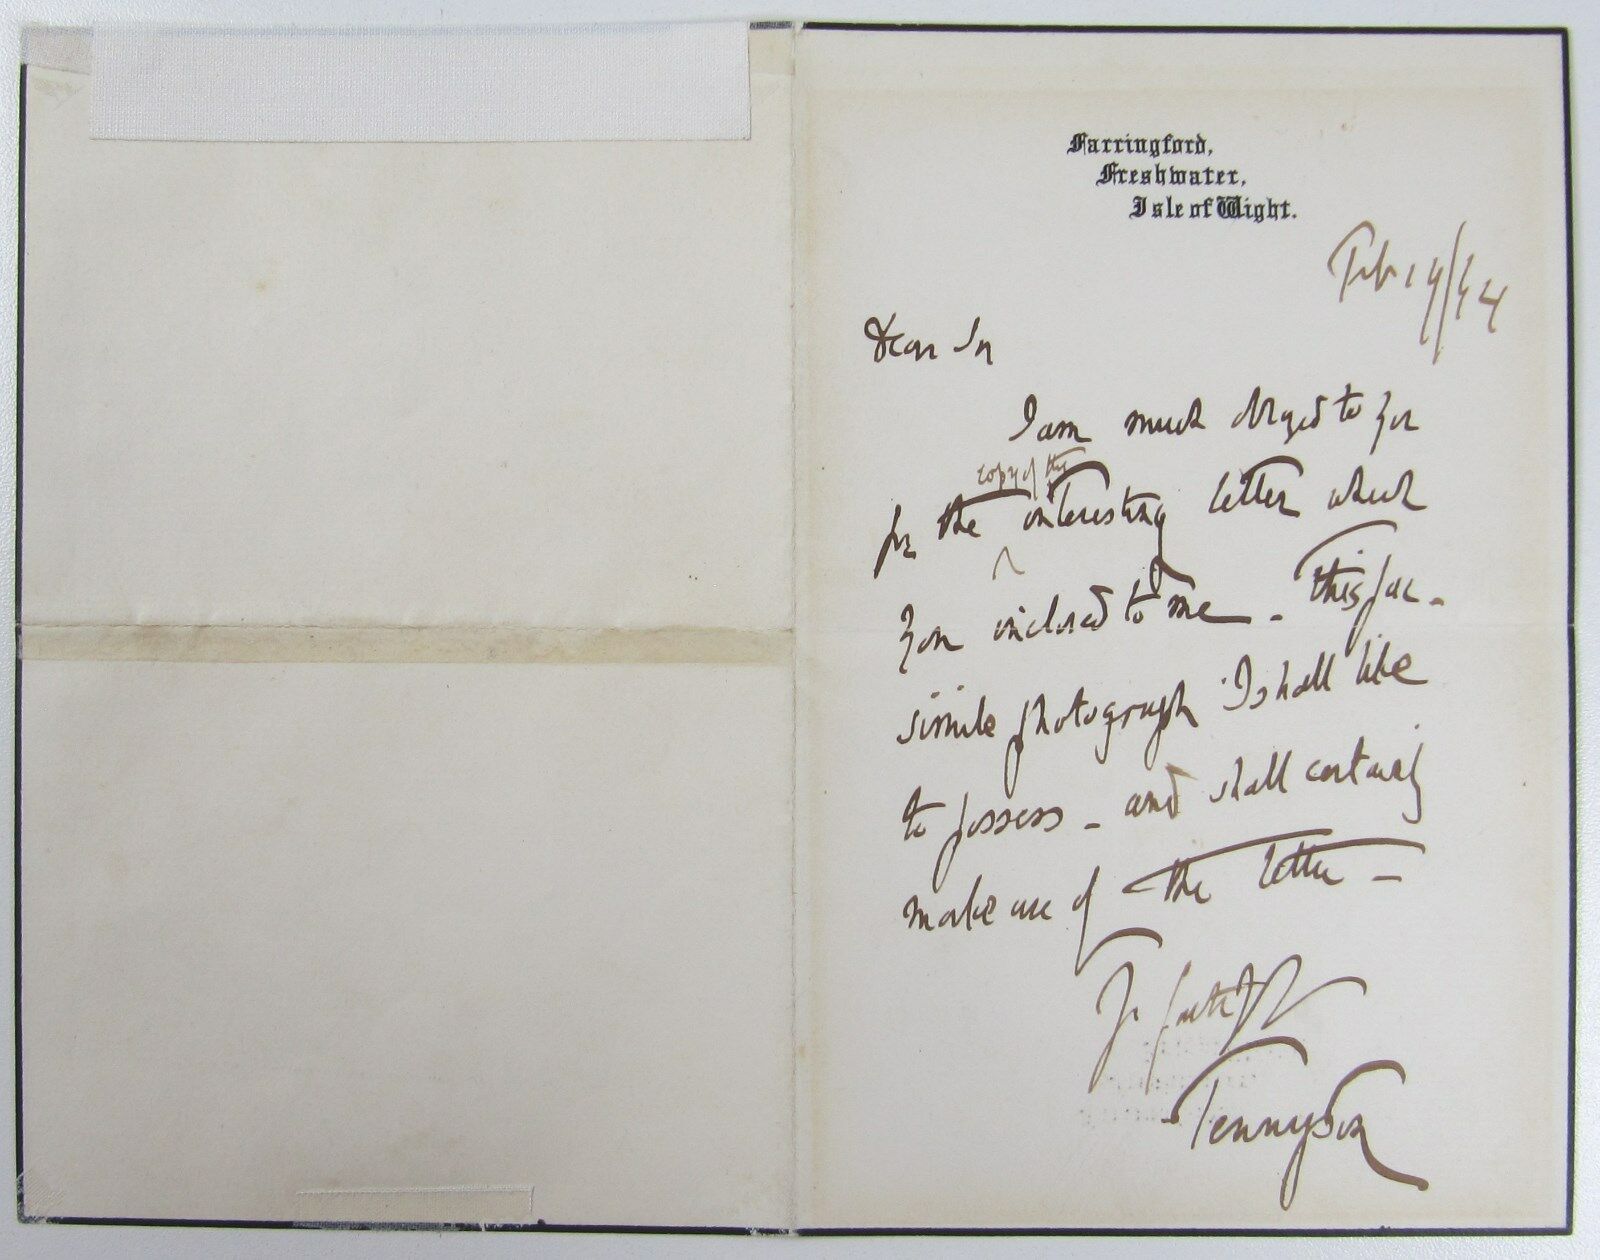 Farringford,
Freshwater,
Isle of Wight.
Feb
Dear Sir
I am much obliged to you
copy of the
for the interesting letter which
you inclosed to me _ this fac-
simile photograph I shall like
to possess _ and shall certainly
make use of the letter _
Yrs faithfully
Tennyson